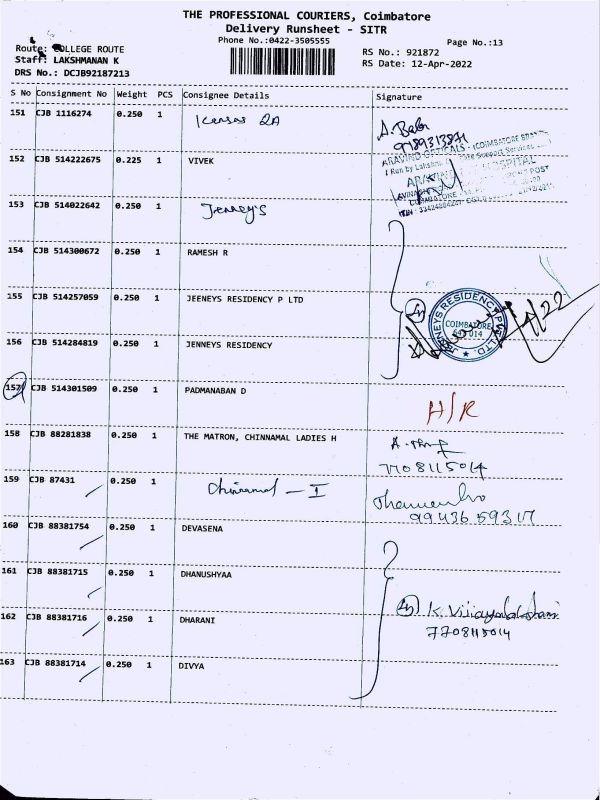 THE PROFESSIONAL COURIERS, Coimbatore
Delivery Runsheet - SITR
Phone No.:0422-3505555
Page No.:13
Route: COLLEGE ROUTE
RS No.: 921872
Staff: LAKSHMANAN K
RS Date: 12-Apr-2022
DRS No.: DCJB92187213
S No Consignment No Weight PCS Consignee Details Signature
151 CJB 1116274 0.250 1
A. Babu
152 CJB 514222675 0.225 1 VIVEK
ARAVIND OPTICALS - (COIMBATORE
HOSPITAL
153 CJB 514022642 0.250 1 Jenney's
154 CJB 514300672 0.250 1 RAMESH R
155 CJB 514257059 0.250 1 JEENEYS RESIDENCY P LTD
4
JENNEYS RESIDENCY PVT. LTD.
COIMBATORE
641 014
156 CJB 514284819 0.250 1 JENNEYS RESIDENCY
157 CJB 514301509 0.250 1 PADMANABAN D
H/R
158 CJB 88281838 0.250 1 THE MATRON, CHINNAMAL LADIES H
7708115014
159 CJB 87431 0.250 1 Chinnamal - I
99436 59317
160 CJB 88381754 0.250 1 DEVASENA
161 CJB 88381715 0.250 1 DHANUSHYAA
162 CJB 88381716 0.250 1 DHARANI
4 K. Vijayalakshmi
7708115014
163 CJB 88381714 0.250 1 DIVYA